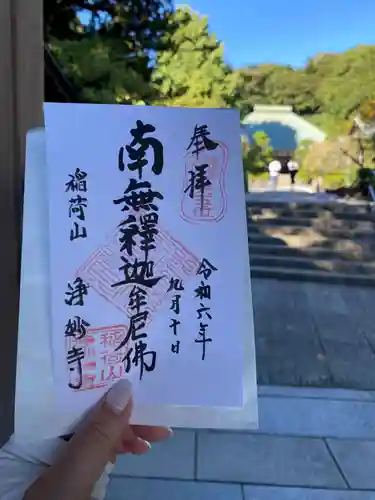 奉拝
令和六年
九月十日
南無釈迦牟尼佛
稲荷山
浄妙寺
稲荷山